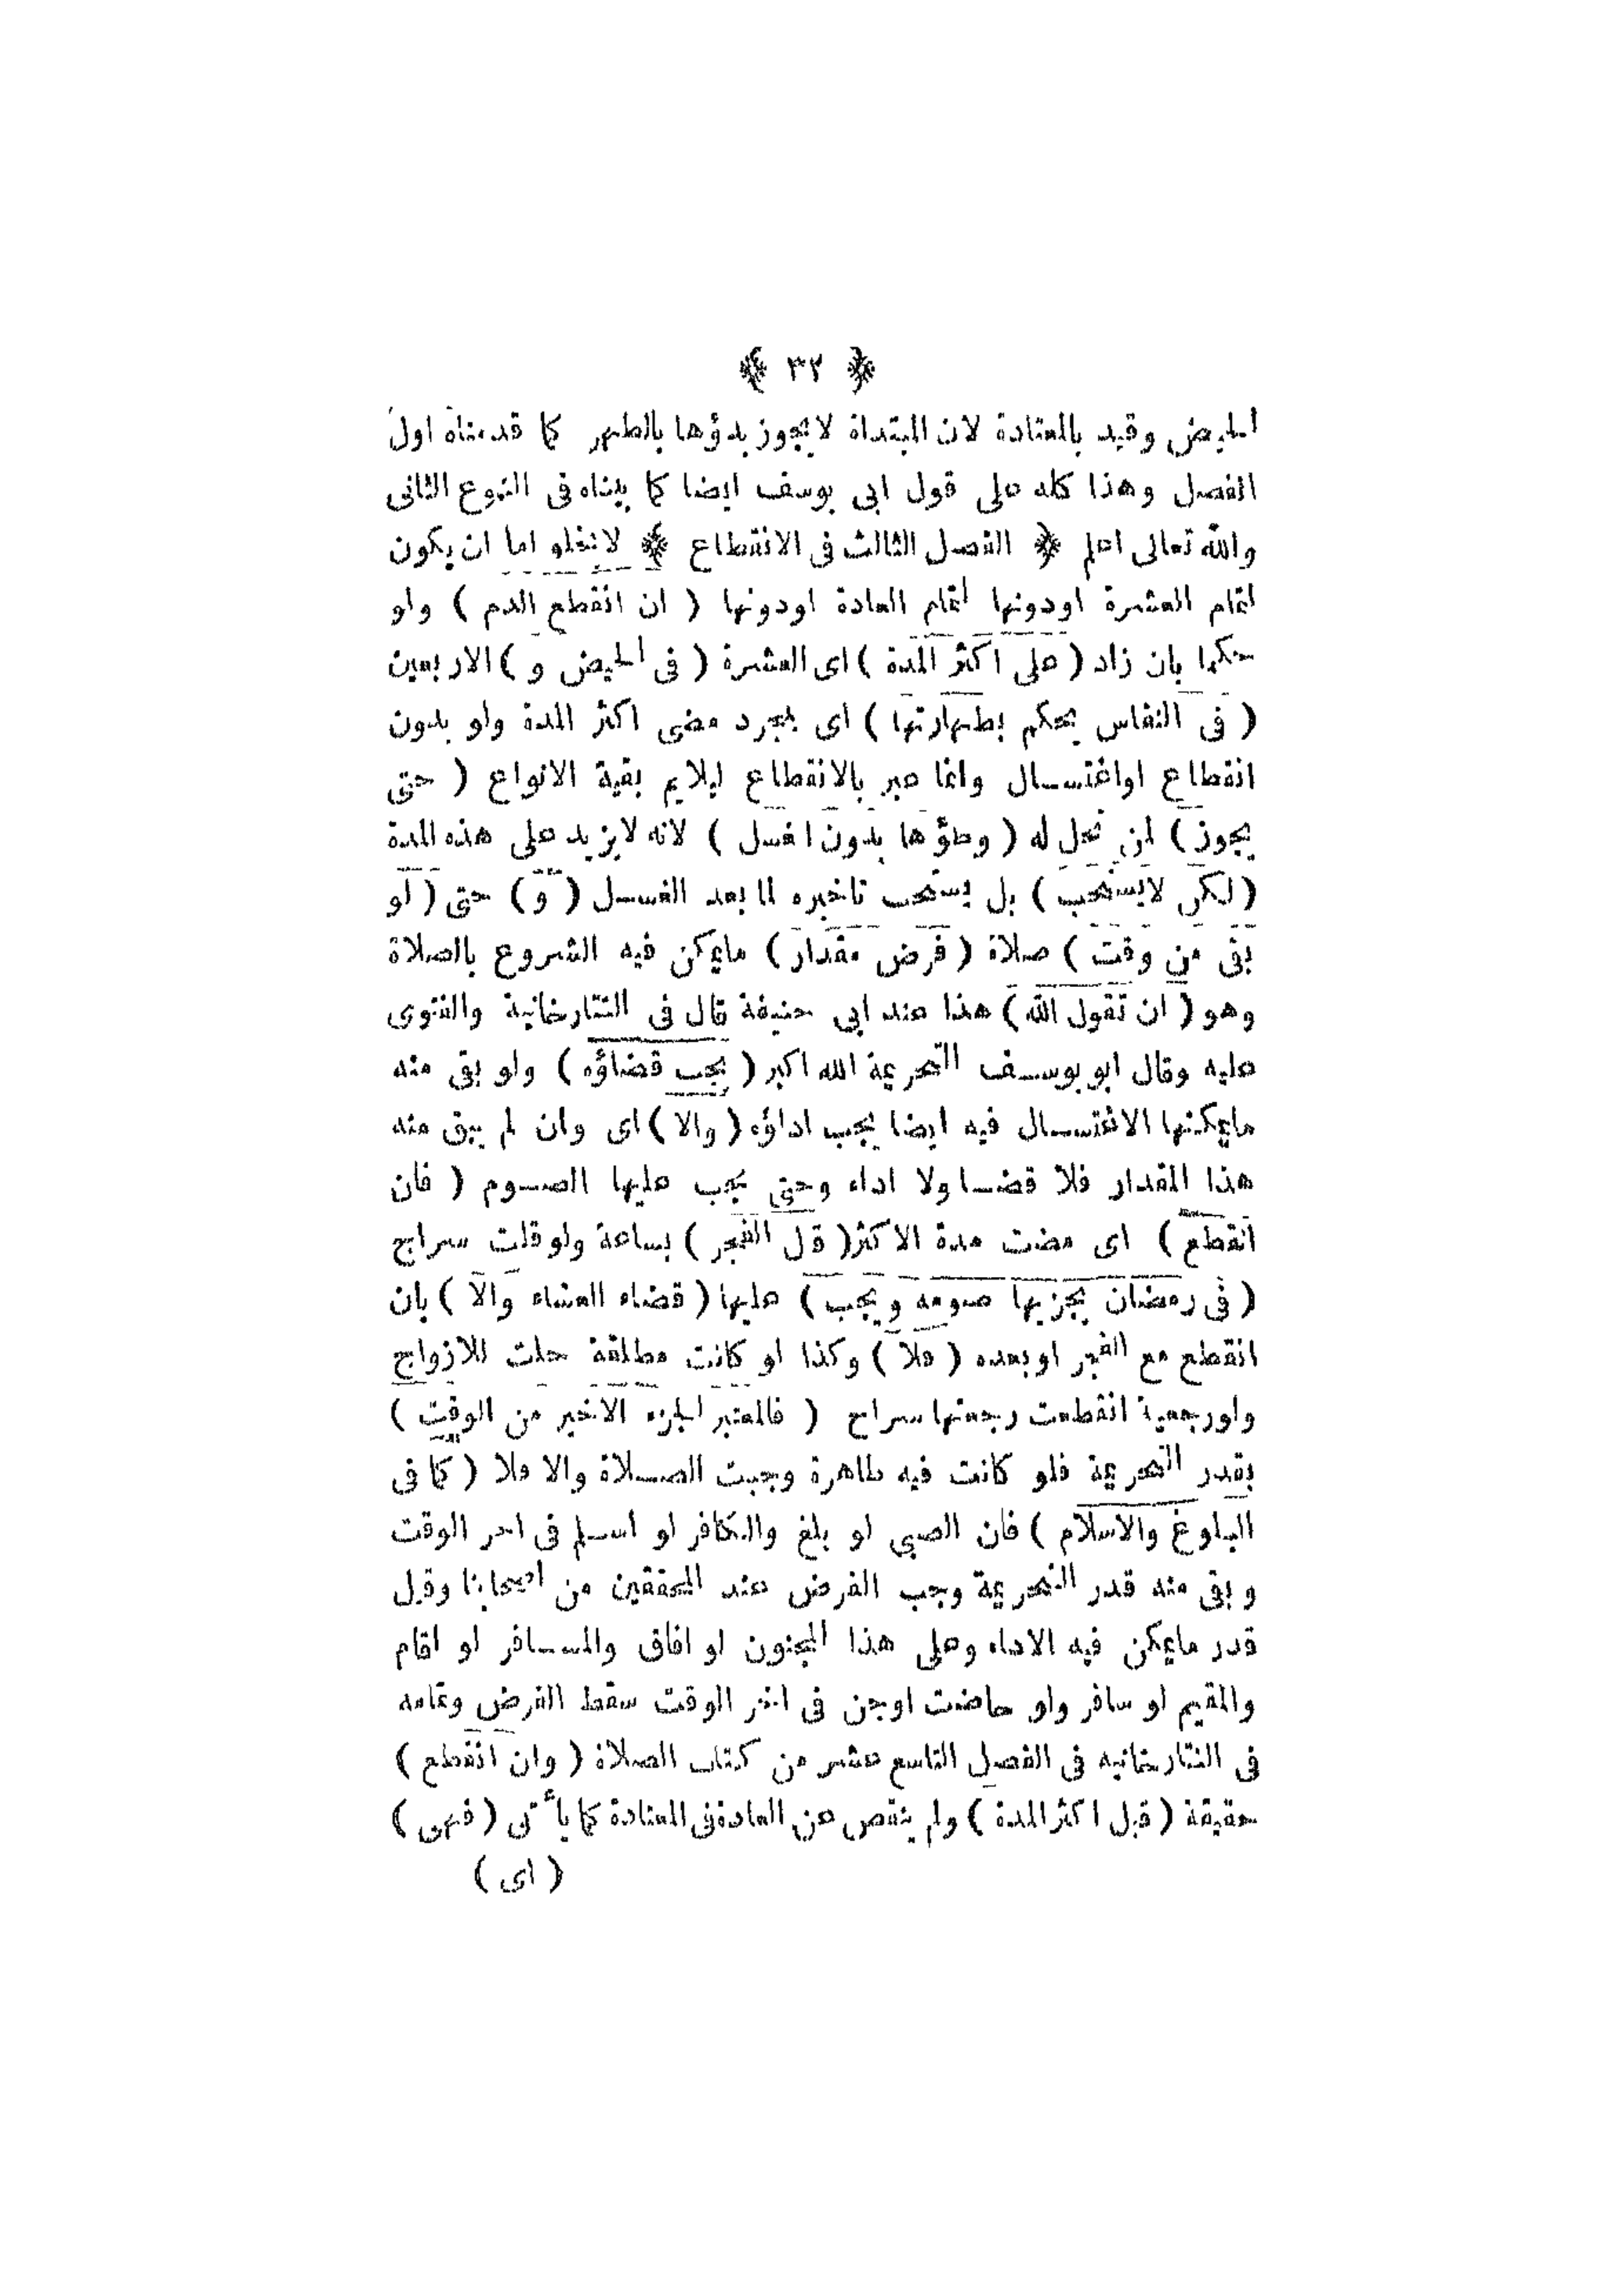 ﴿ ٣٢ ﴾
الحيض وقيد بالمعتادة لان المبتداة لا يجوز بدؤها بالطهر كما قدمناه اول
الفصل وهذا كله على قول ابى يوسف ايضا كما بيناه فى النوع الثانى
والله تعالى اعلم ﴿ الفصل الثالث فى الانقطاع ﴾ لا يخلو اما ان يكون
لتمام العشرة اودونها لتمام العادة اودونها ( ان انقطع الدم ) ولو
حكما بان زاد ( على اكثر المدة ) اى العشرة ( فى الحيض و ) الاربعين
( فى النفاس يحكم بطهارتها ) اى بمجرد مضى اكثر المدة ولو بدون
انقطاع اواغتسال وانما عبر بالانقطاع ليلايم بقية الانواع ( حتى
يجوز ) لمن تحل له ( وطؤها بدون الغسل ) لانه لا يزيد على هذه المدة
( لكن لا يستحب ) بل يستحب تاخيره لما بعد الغسل ( و ) حتى ( لو
بقى من وقت ) صلاة ( فرض مقدار ) مايمكن فيه الشروع بالصلاة
وهو ( ان تقول الله ) هذا عند ابى حنيفة قال فى التتارخانية والفتوى
عليه وقال ابو يوسف التحريمة الله اكبر ( يجب قضاؤه ) ولو بقى منه
مايمكنها الاغتسال فيه ايضا يجب اداؤه ( والا ) اى وان لم يبق منه
هذا المقدار فلا قضا ولا اداء وحتى يجب عليها الصوم ( فان
انقطع ) اى مضت مدة الاكثر ( قبل الفجر ) بساعة ولو قلت سراج
( فى رمضان يجزيها صومه ويجب ) عليها ( قضاء العشاء والا ) بان
انقطع مع الفجر اوبعده ( فلا ) وكذا لو كانت مطلقة حلت للازواج
ولورجعية انقطعت رجعتها سراج ( فالمعتبر الجزء الاخير من الوقت )
بقدر التحريمة فلو كانت فيه طاهرة وجبت الصلاة والا فلا ( كما فى
البلوغ والاسلام ) فان الصبى لو بلغ والكافر لو اسلم فى اخر الوقت
وبقى منه قدر التحريمة وجب الفرض عند المحققين من اصحابنا وقيل
قدر مايمكن فيه الاداء وعلى هذا المجنون لو افاق والمسافر لو اقام
والمقيم لو سافر ولو حاضت اوجن فى اخر الوقت سقط الفرض وتمامه
فى التتارخانيه فى الفصل التاسع عشر من كتاب الصلاة ( وان انقطع )
حقيقة ( قبل اكثر المدة ) ولم ينقص عن العادة فى المعتادة كما يأتى ( فهى )
( اى )